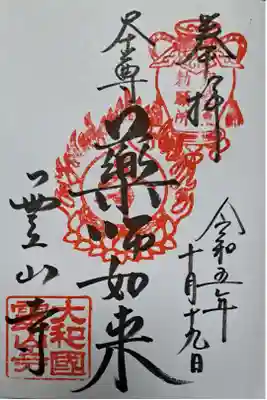 奉拝
令和五年
十月十九日
藥師如来
霊山寺
大和國
霊山寺